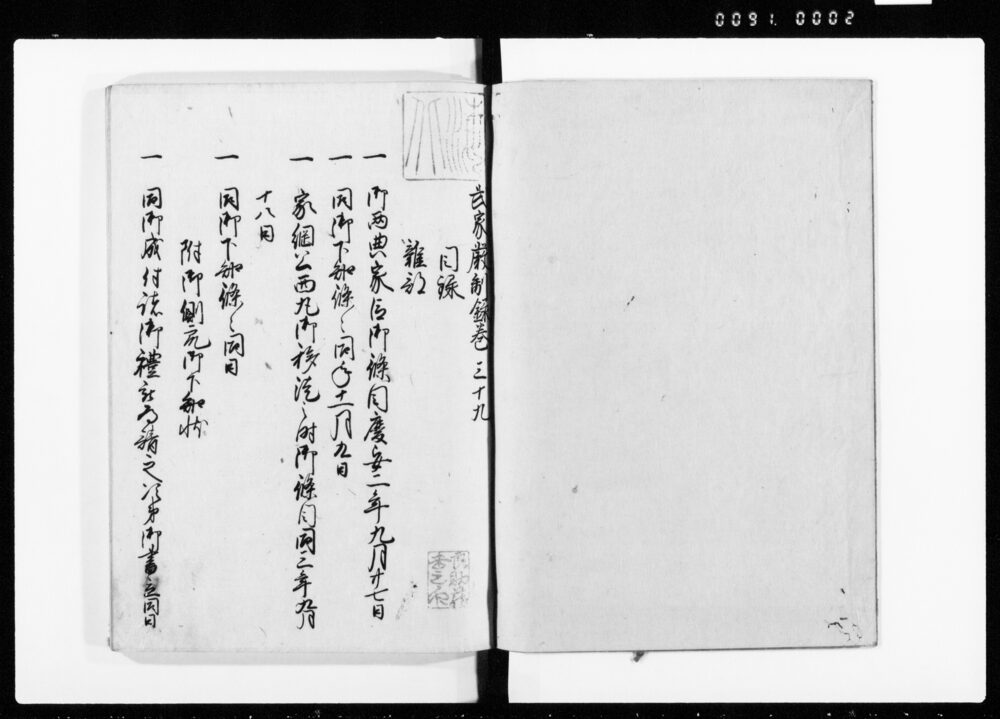 0091.0002
武家嚴制録巻三十九
目録
雜部
一 御両典家江御條目慶安二年九月廿七日
一 同御下知條々同年十一月九日
一 家綱公西丸御移徙之時御條目同三年九月
十八日
一 同御下知條々同日
附御側衆御下知状
一 同御成付諸御禮
御書立同日